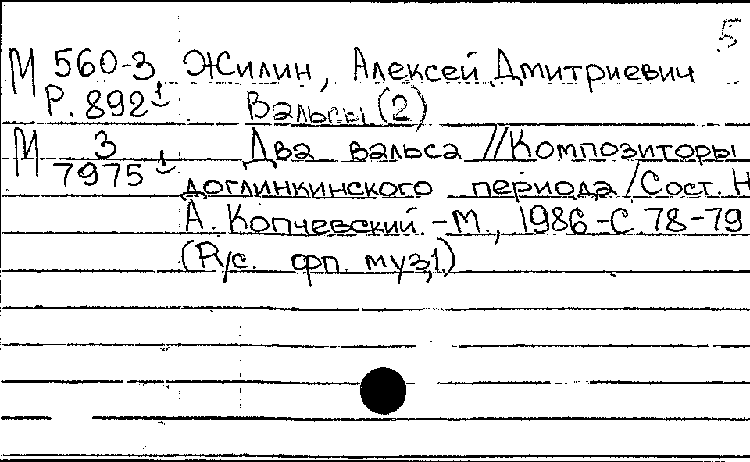 5
М 560-3 Жилин, Алексей Дмитриевич
Р. 892 Вальсы (2)
М 3 Два вальса // Композиторы
7975 доглинкинского периода / Сост. Н
А. Копчевский. - М., 1986 - С 78-79
(R/с. фп. муз, 1)